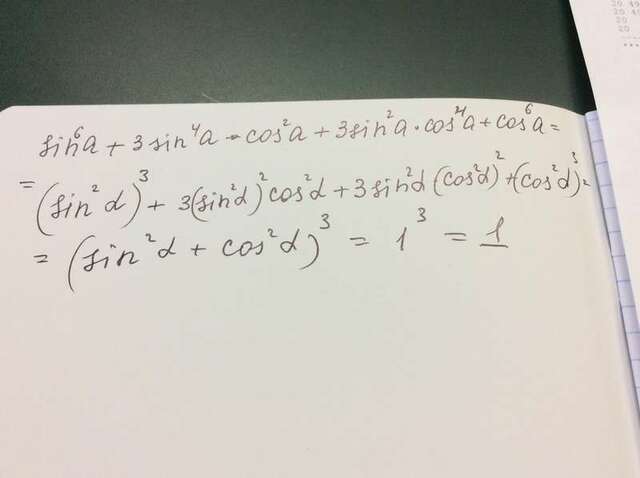 20 49
20 49
20
20
sin⁶a + 3 sin⁴a - cos²a + 3sin²a · cos⁴a + cos⁶a =
= (sin²α)³ + 3(sin²α)² cos²α + 3sin²α (cos²α)² + (cos²α)³ =
= (sin²α + cos²α)³ = 1³ = 1